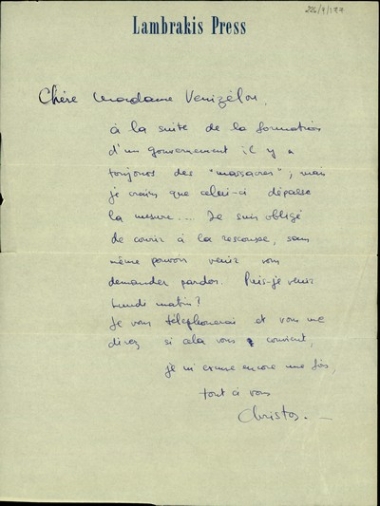 Lambrakis Press
Chère Madame Venizélou,
à la suite de la formation
d'un gouvernement il y a
toujours des "massacres", mais
je crains que celui-ci dépasse
la mesure... Je suis obligé
de courir à la rescousse, sans
même pouvoir venir vous
demander pardon. Puis-je venir
lundi matin?
Je vous téléphonerai et vous me
direz si cela vous convient,
je m'excuse encore une fois,
tout à vous
Christos.